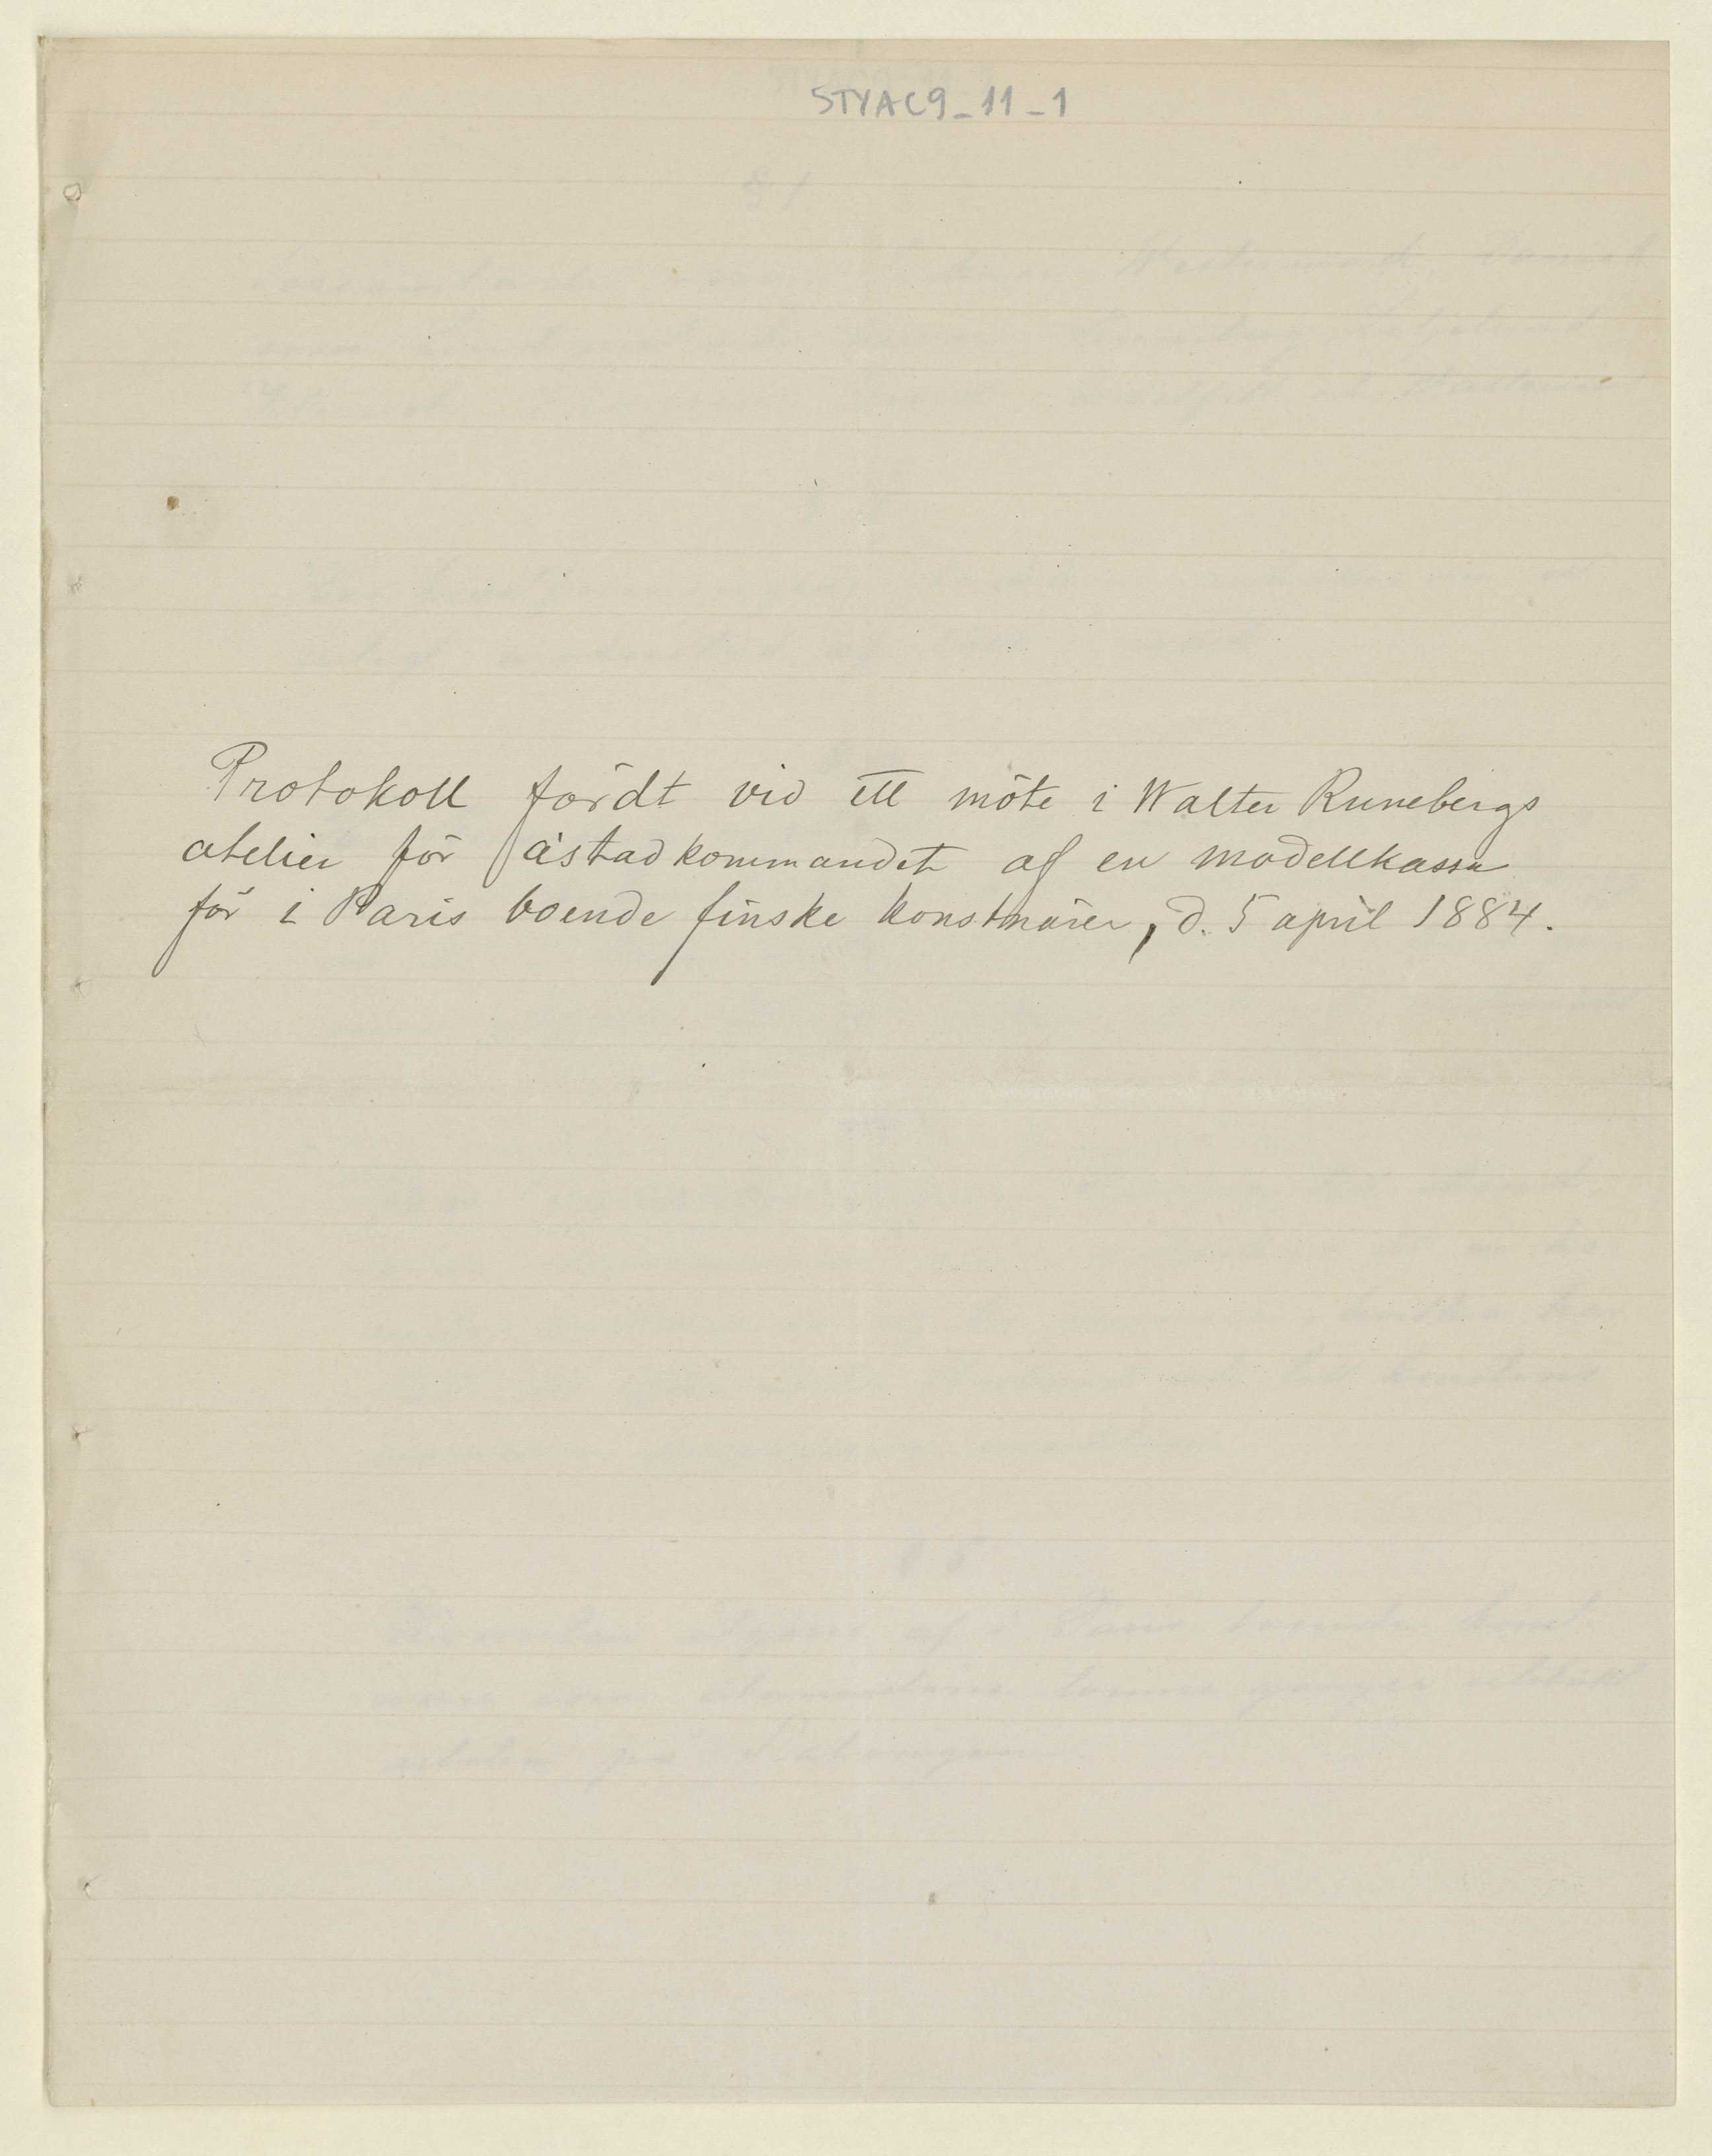 STYAC9_11_1
Protokoll fördt vid ett möte i Walter Runebergs
atelier för åstadkommandet af en modellkassa
för i Paris boende finske konstnärer, d. 5 april 1884.